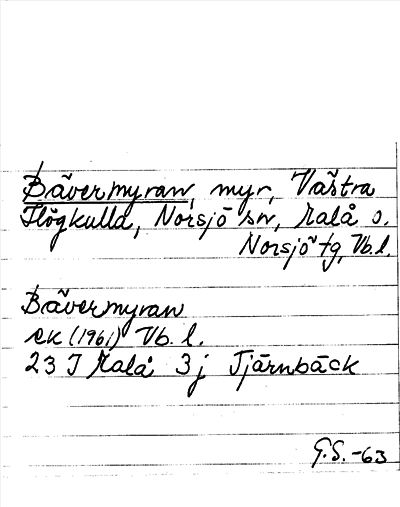 Bävermyran, myr, Västra
Högkulla, Norsjö sn, Malå o.
Norsjö tg, Vb.l.
Bävermyran
ek (1961) Vb. l.
23 J Malå 3j Tjärnbäck
G.S.-63